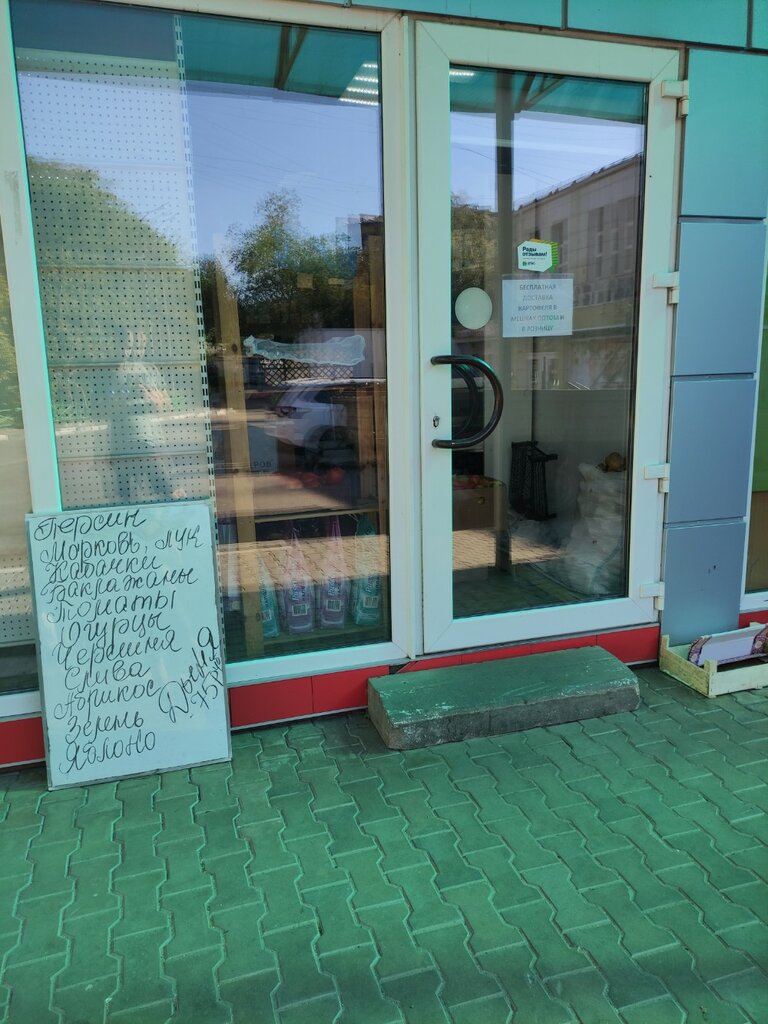 Рады
отзывам!
2ГИС
БЕСПЛАТНАЯ
ДОСТАВКА
КАРТОФЕЛЯ В
МЕШКАХ ОПТОМ И
В РОЗНИЦУ
Персик
Морковь, лук
Кабачки
Баклажаны
Томаты
Огурцы
Черешня
Слива
Абрикос
Зерень
Яблоко
Дыня
-75 руб